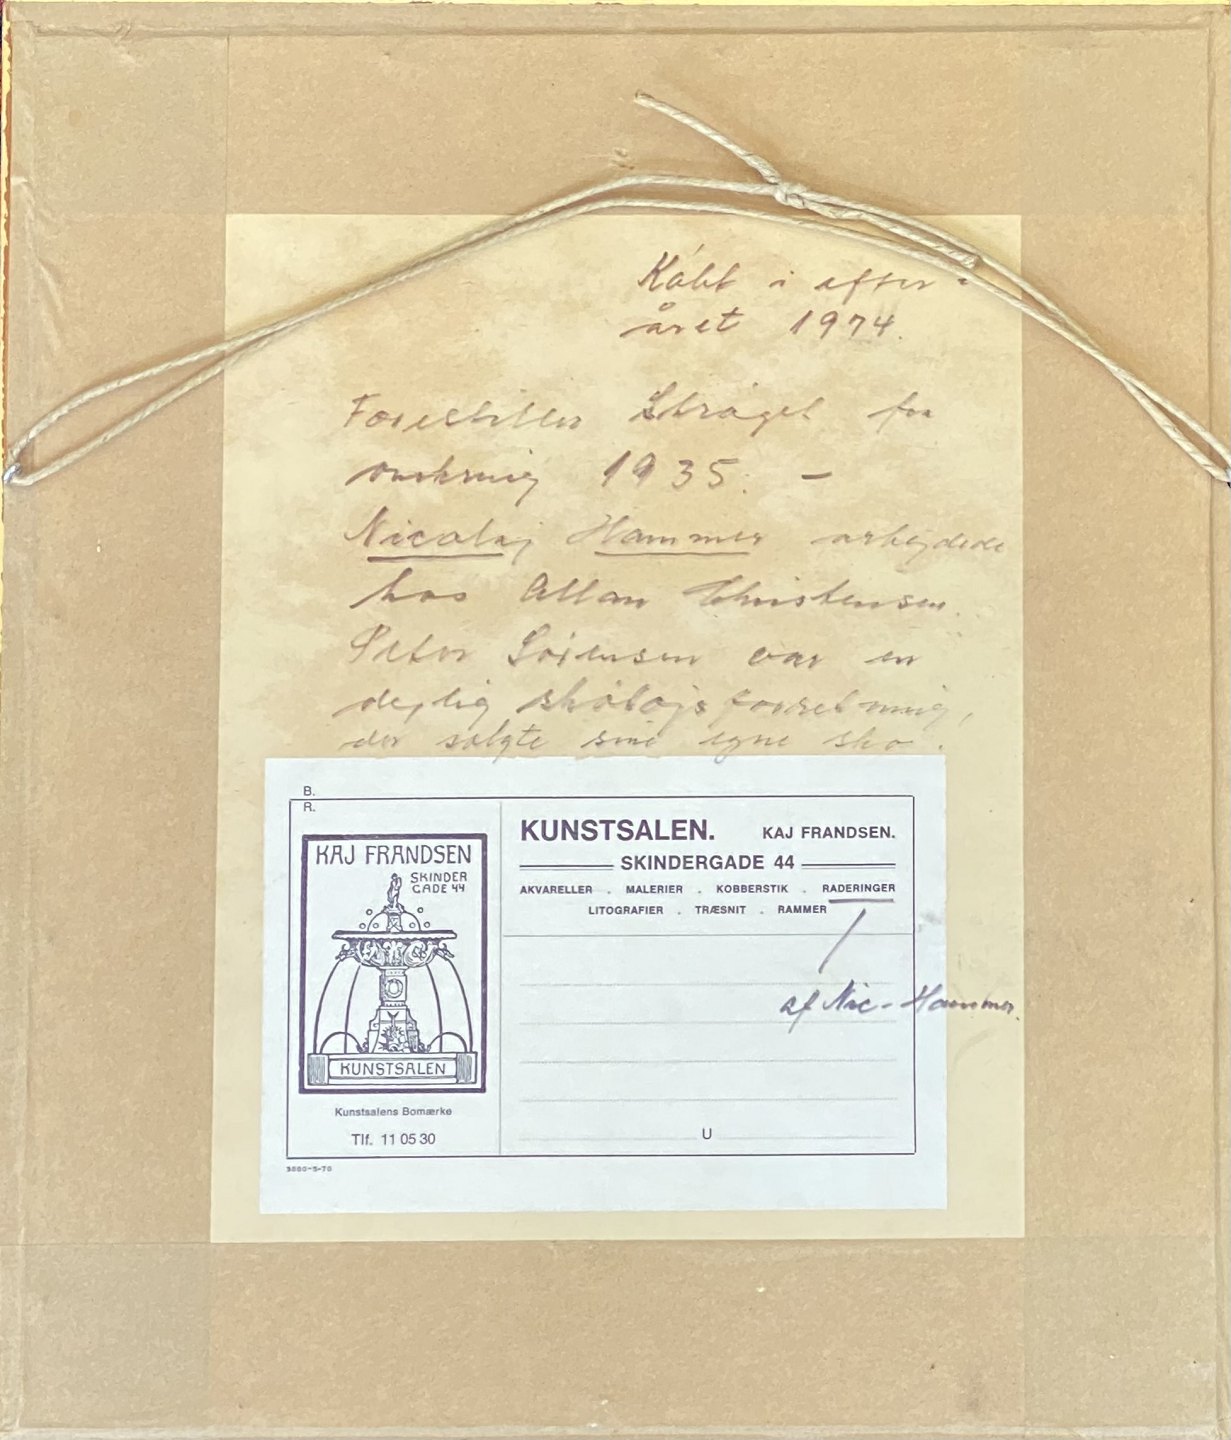 Købt i efter=
året 1974.
Forestiller Strøget fra
omkring 1935. –
Nicolaj Hammer arbejdede
hos Allan Christensen.
Peter Sörensen var en
dejlig skötøjsforretning,
der solgte sine egne sko.
B.
R.
KAJ FRANDSEN
SKINDER
GADE 44
KUNSTSALEN
Kunstsalens Bomærke
Tlf. 11 05 30
3000-5-70
KUNSTSALEN. KAJ FRANDSEN.
SKINDERGADE 44
AKVARELLER . MALERIER . KOBBERSTIK . RADERINGER
LITOGRAFIER . TRÆSNIT . RAMMER
af Nic- Hammer.
U